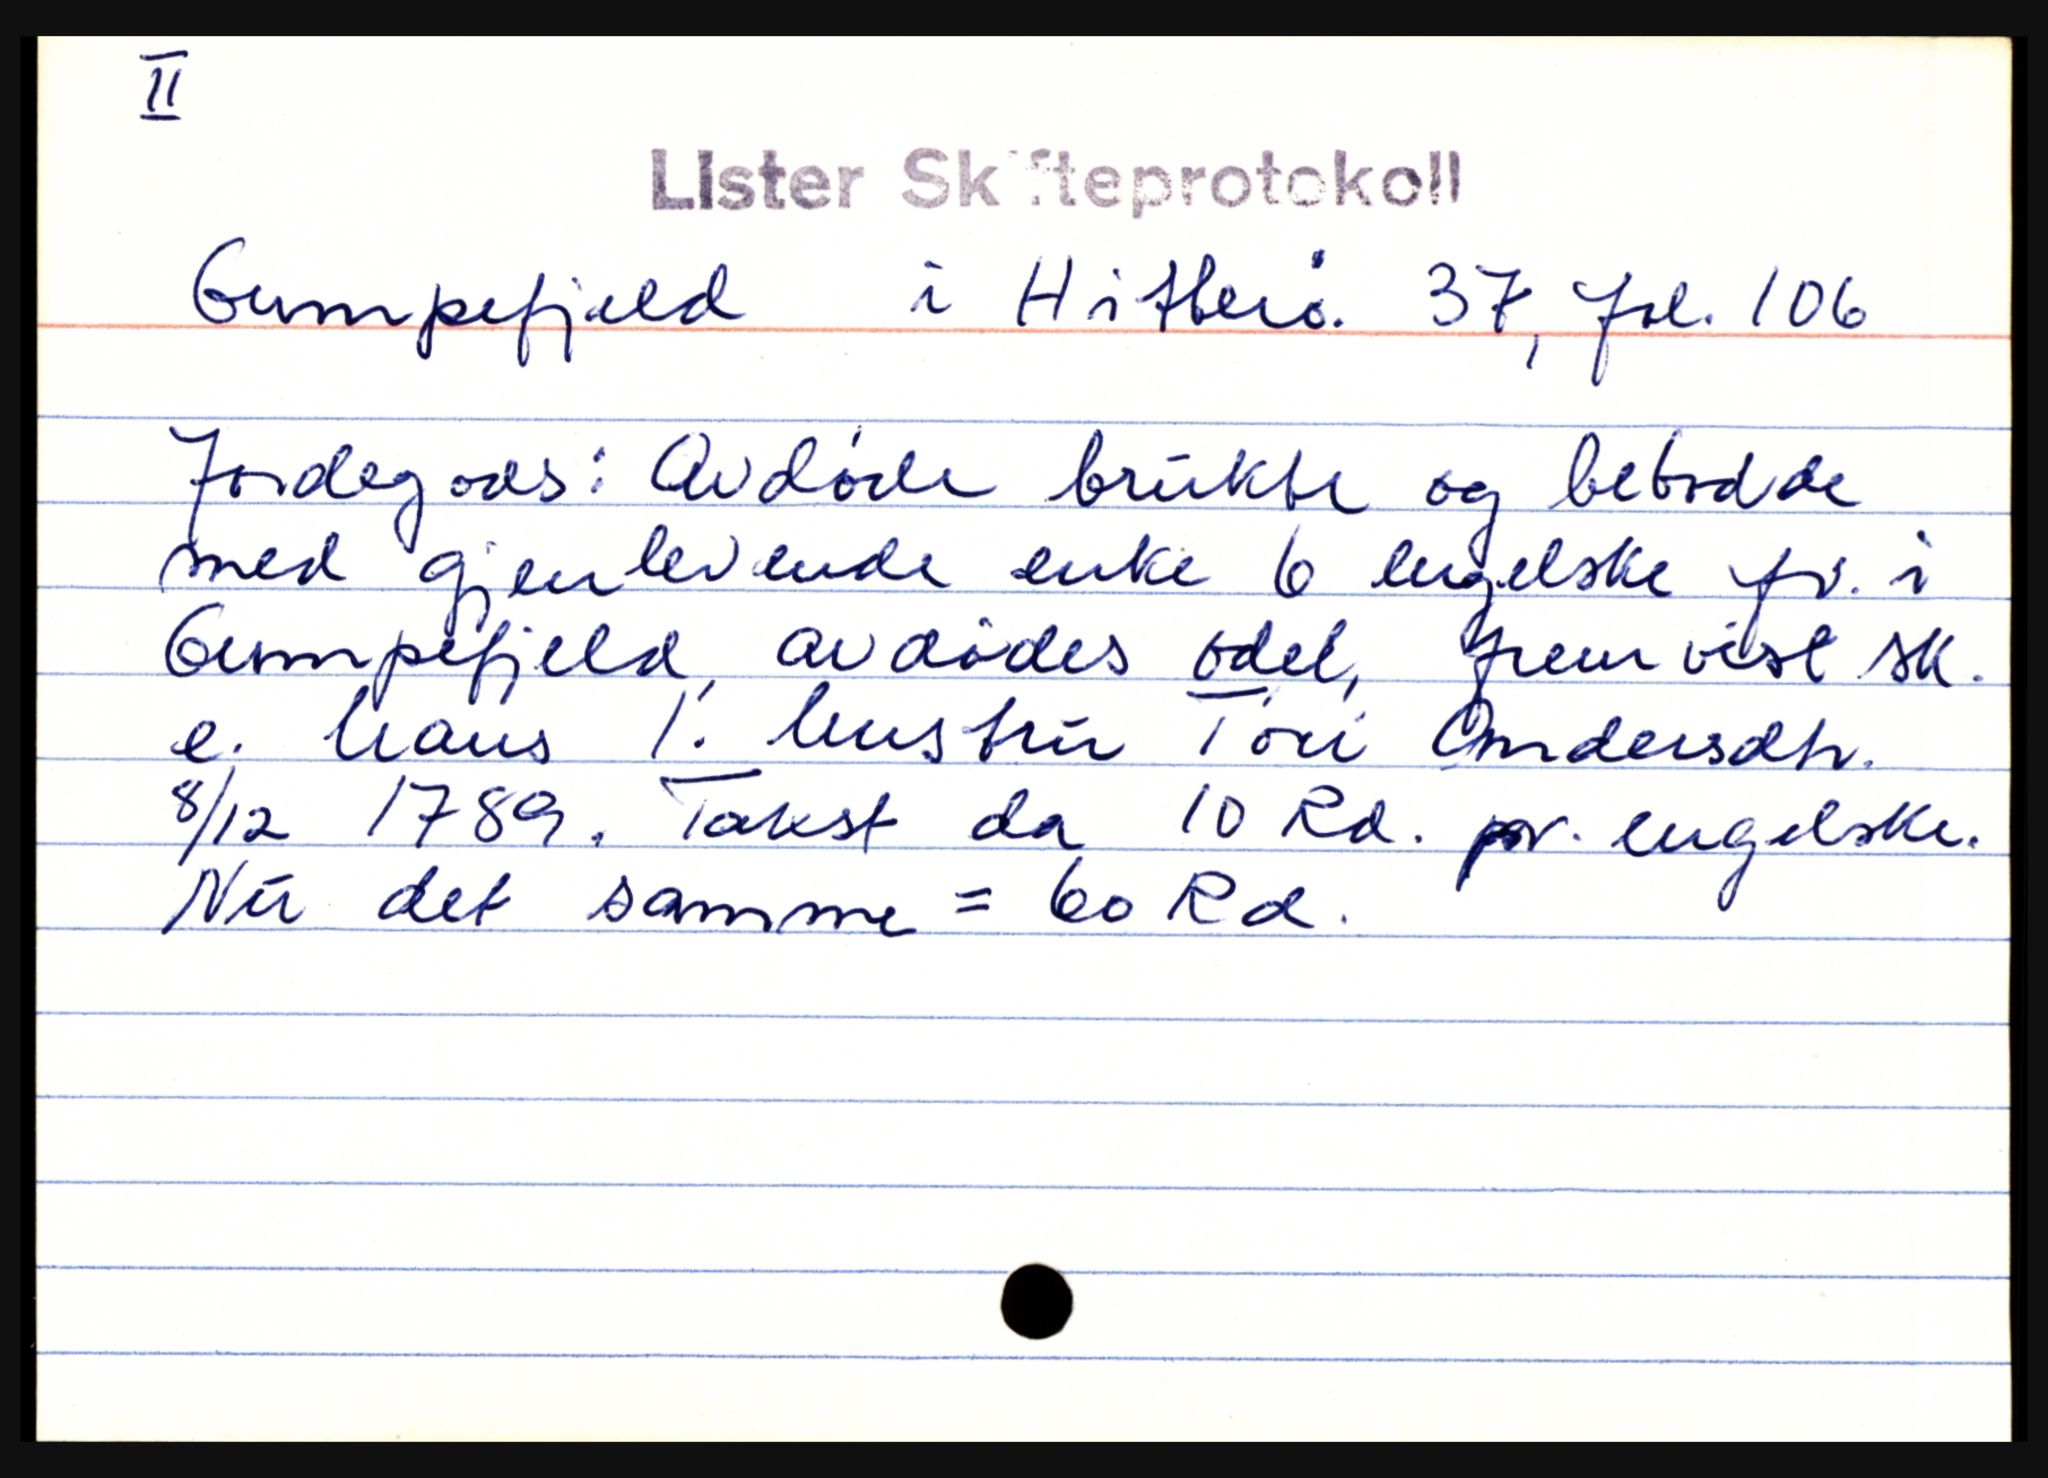 II
Lister Skifteprotokoll
Gumpefjeld i Hitterø. 37, fol. 106
Jordegods: Avdøde brukte og bebodde
med gjenlevende enke 6 engelske frv. i
Gumpefjeld, avdødes odel, fremvist sk.
e. hans 1. hustru Tori Andersdtr.
8/12 1789. Takst da 10 Rd. pr. engelske.
Nu det samme = 60 Rd.